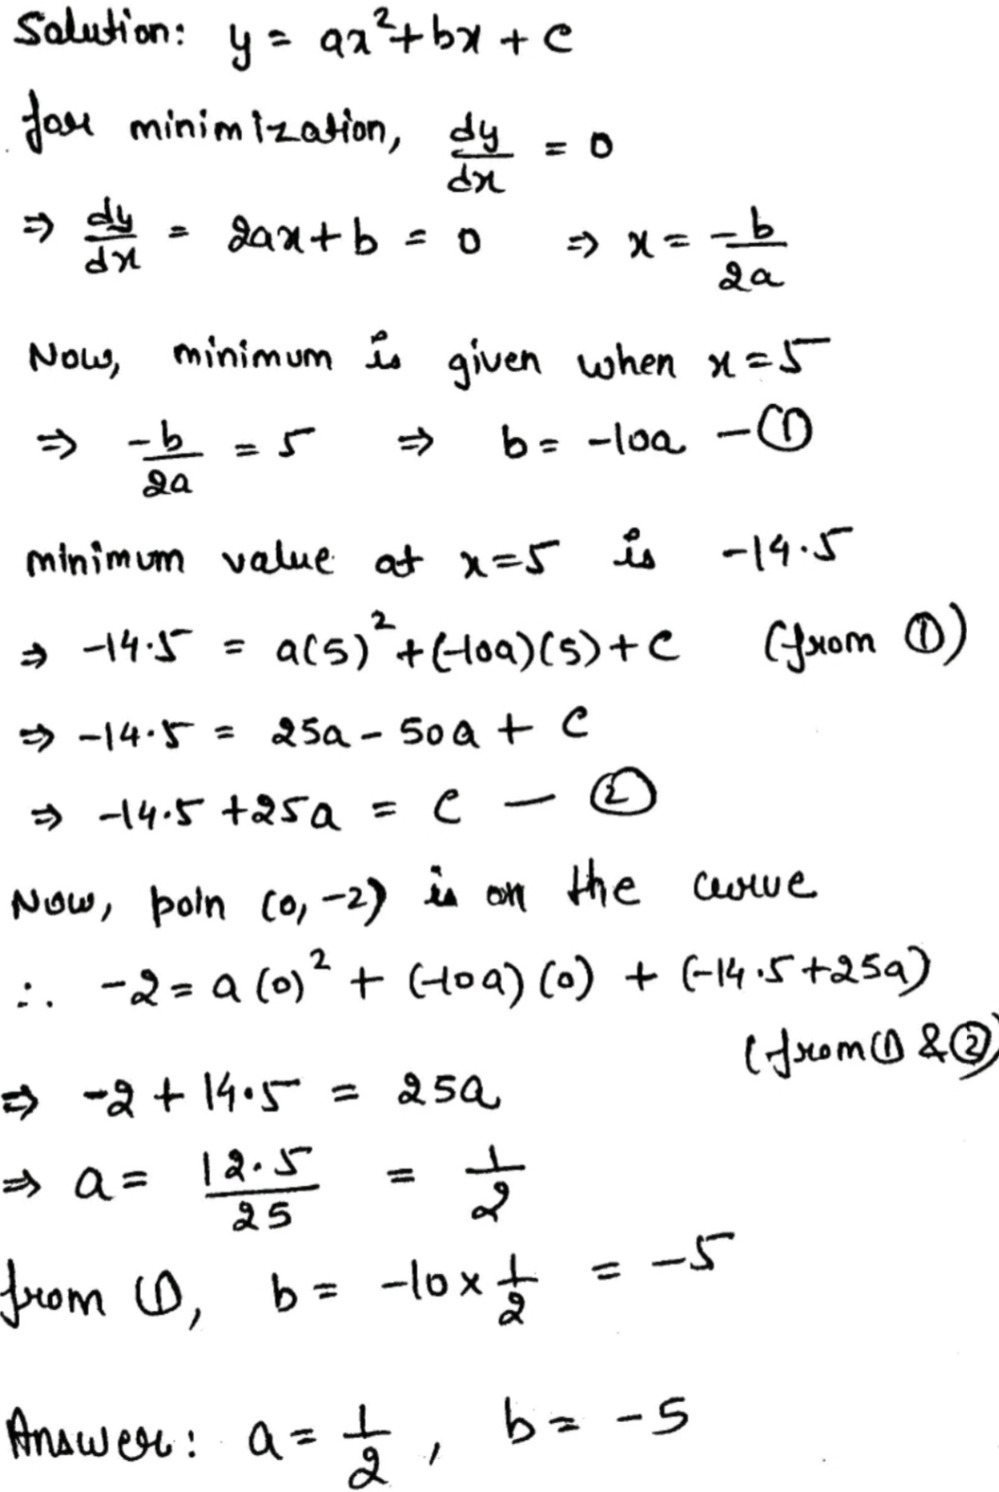 Solution: y = ax²+bx + c
for minimization, dy/dx = 0
⇒ dy/dx = 2ax+b = 0 ⇒ x = -b/2a
Now, minimum is given when x=5
⇒ -b/2a = 5 ⇒ b = -10a -①
minimum value at x=5 is -14.5
⇒ -14.5 = a(5)²+(-10a)(5)+c (from ①)
⇒ -14.5 = 25a - 50a + c
⇒ -14.5 +25a = c - ②
Now, poin (0,-2) is on the curve
∴ -2 = a(0)² + (-10a)(0) + (-14.5+25a)
(from ① & ②)
⇒ -2 + 14.5 = 25a
⇒ a = 12.5/25 = 1/2
from ①, b = -10 x 1/2 = -5
Answer: a = 1/2, b = -5